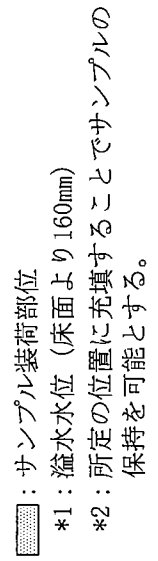 ：サンプル装荷部位
*1：溢水水位（床面より160mm）
*2：所定の位置に充填することでサンプルの
保持を可能とする。